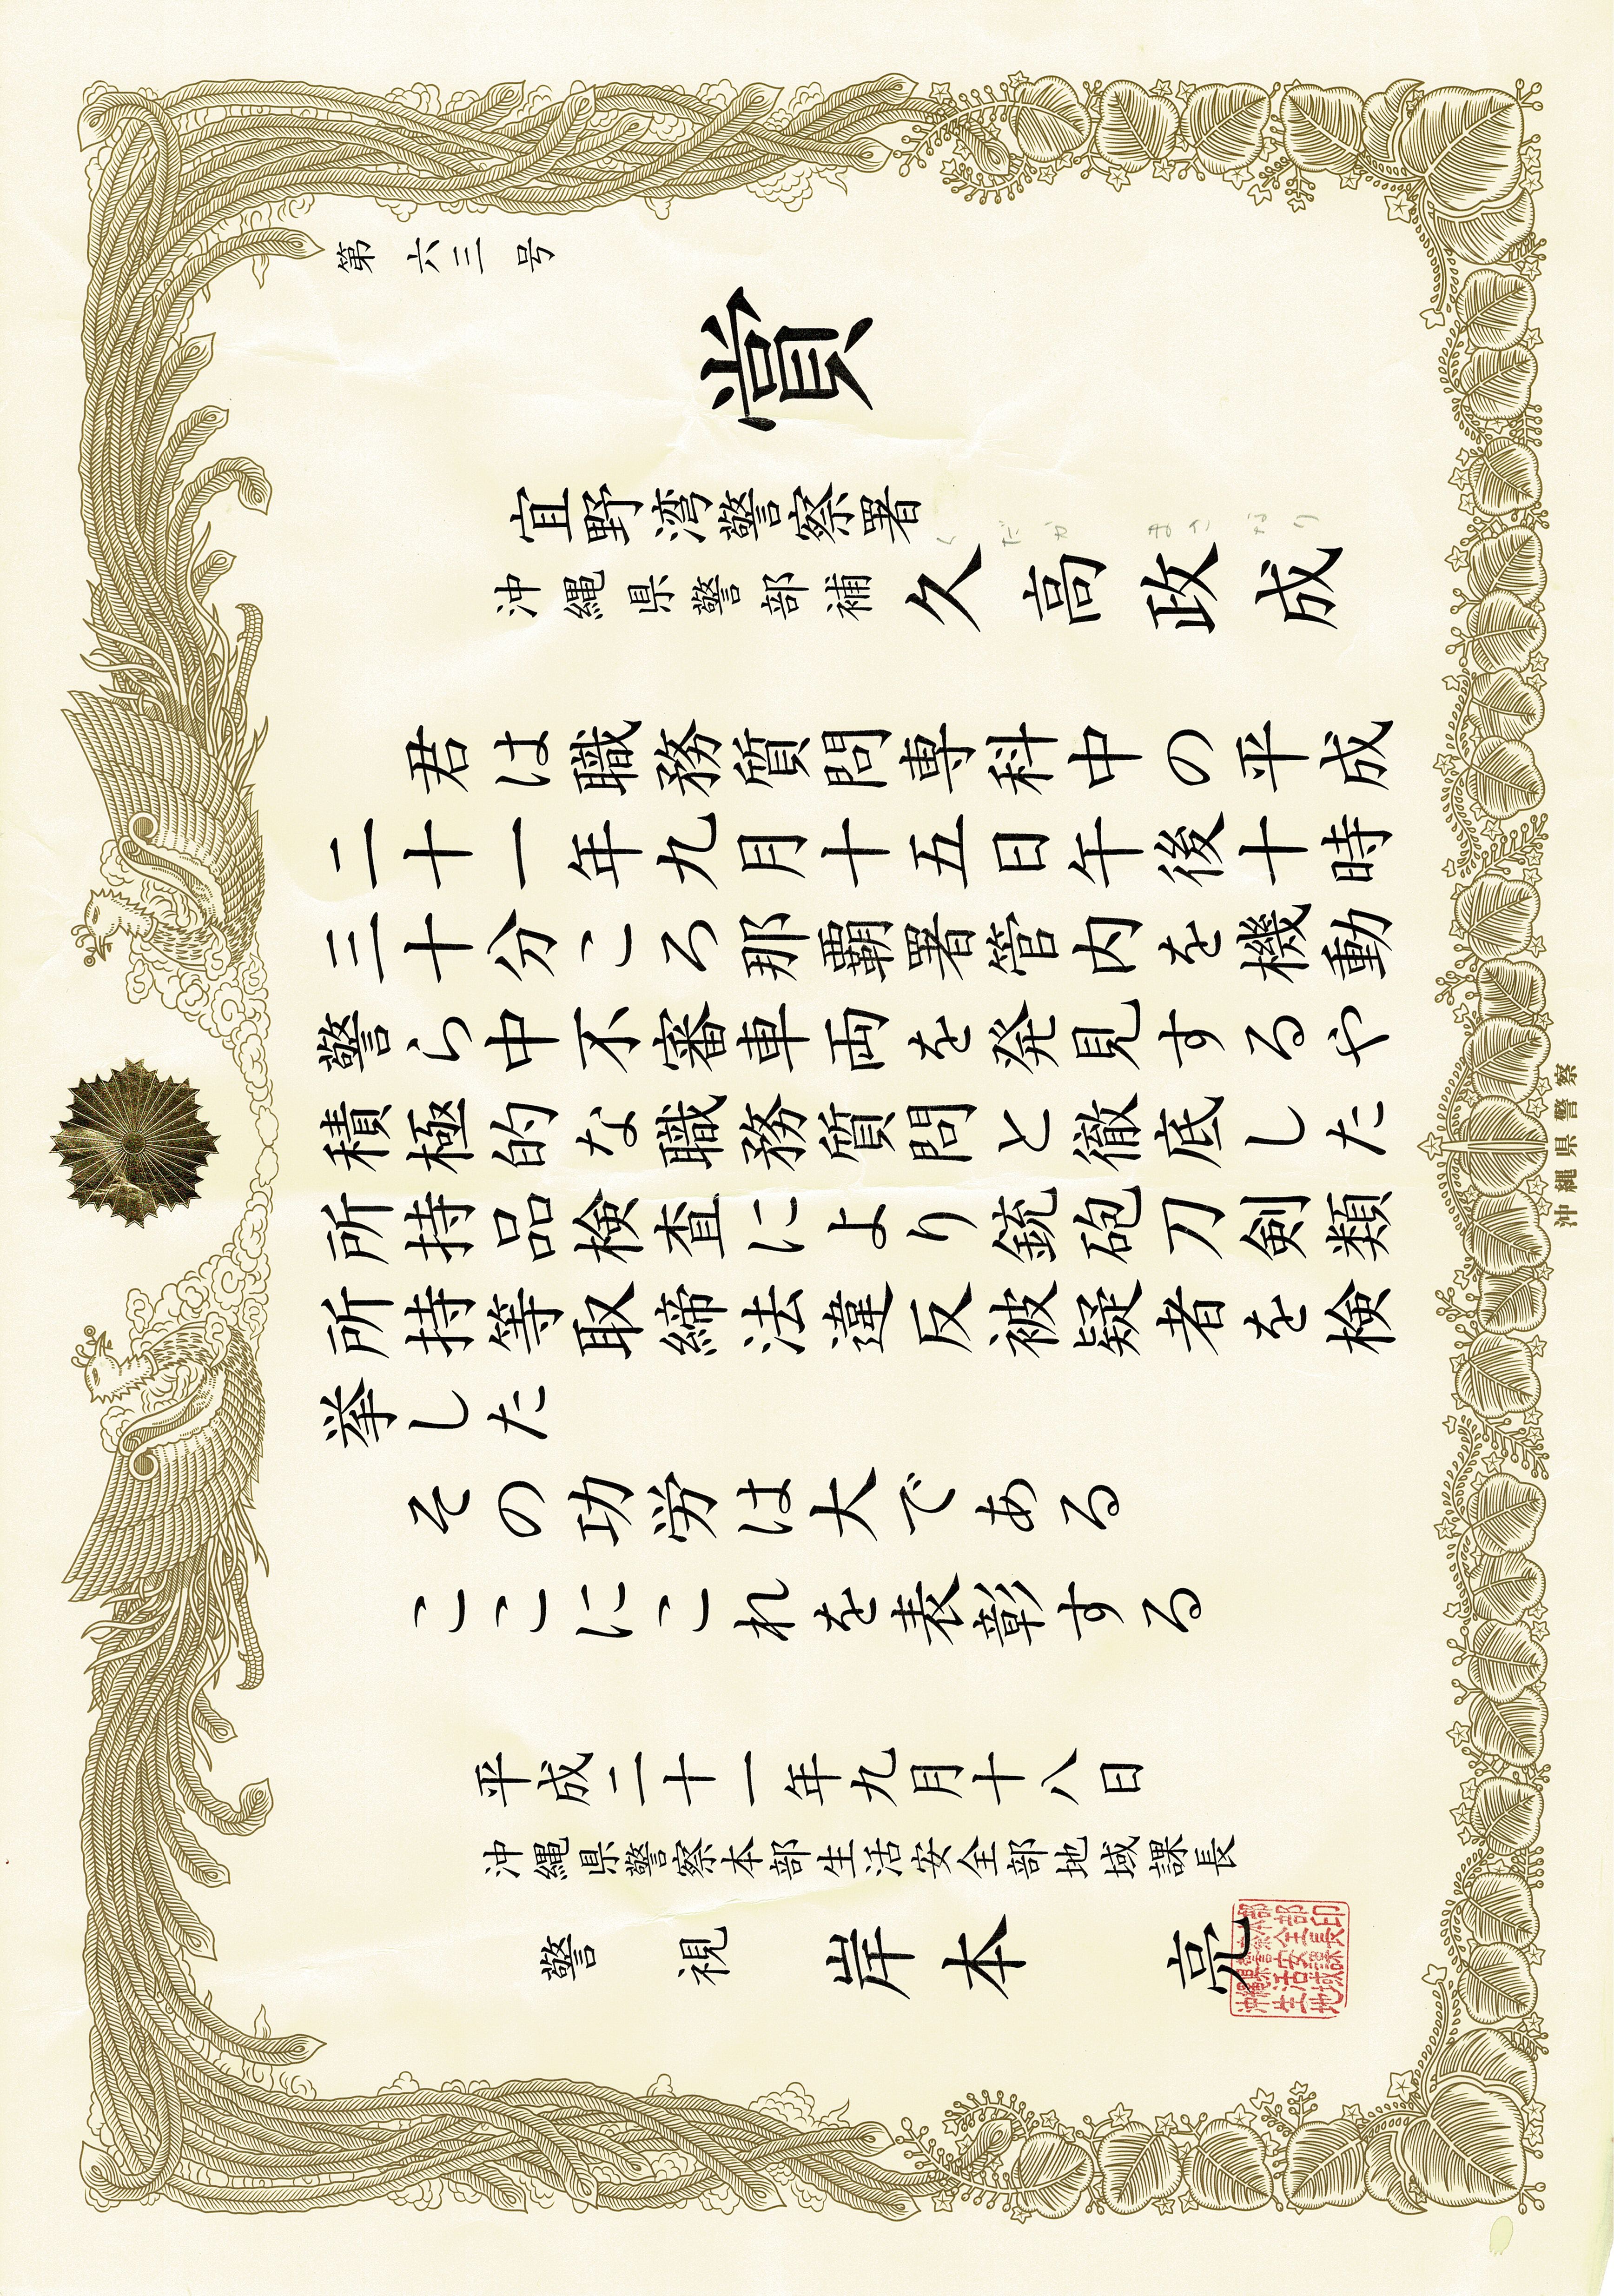 第六三号
賞
宜野湾警察署
沖縄県警部補 久高政成
くだか まさなり
君は職務質問専科中の平成
二十一年九月十五日午後十時
三十分ころ那覇署管内を機動
警ら中不審車両を発見するや
積極的な職務質問と徹底した
所持品検査により銃砲刀剣類
所持等取締法違反被疑者を検
挙した
その功労は大である
ここにこれを表彰する
平成二十一年九月十八日
沖縄県警察本部生活安全部地域課長
警視 岸本 亮
沖縄県警察本部
生活安全部
地域課長印
沖縄県警察